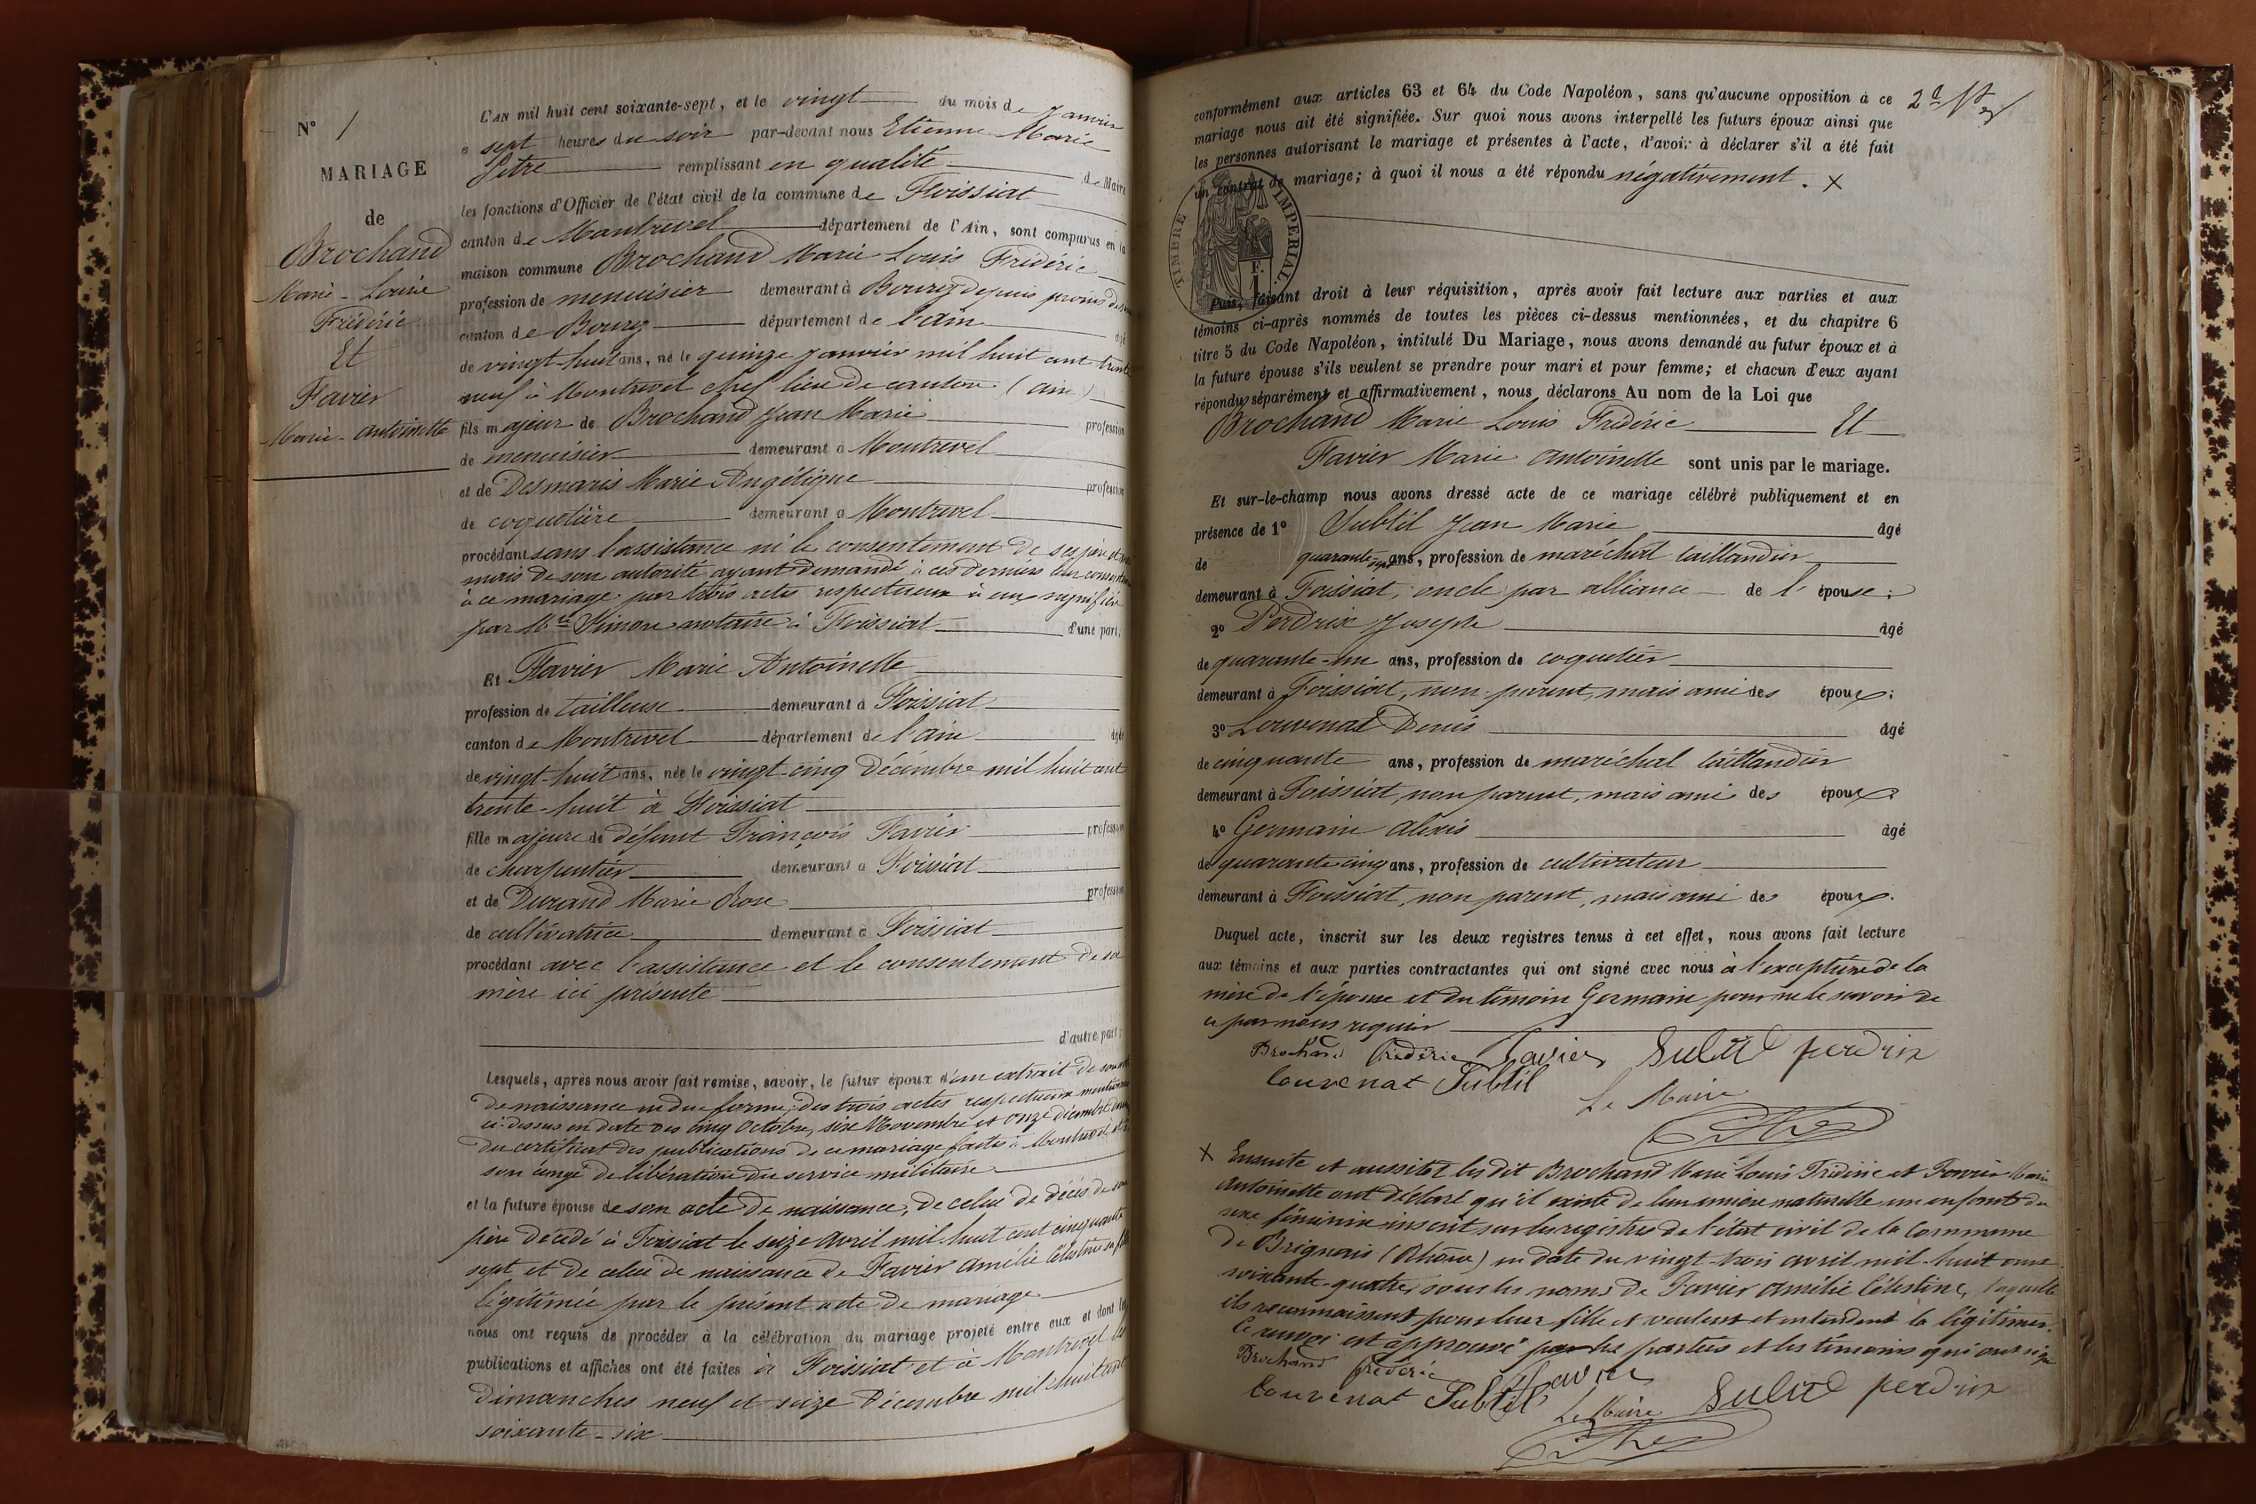 N° 1
MARIAGE
de
Brochand
Marie-Louis
Frédéric
Et
Favier
Marie-Antoinette
L'AN mil huit cent soixante-sept, et le vingt du mois de Janvier
à sept heures du soir par-devant nous Etienne Marie
Pitre remplissant en qualité de Maire
les fonctions d'Officier de l'état civil de la commune de Foissiat
canton de Montrevel département de l'Ain, sont comparus en la
maison commune Brochand Marie Louis Frédéric
profession de menuisier demeurant à Bourg depuis
canton de Bourg département de l'ain âgé
de vingt-huit ans, né le quinze Janvier mil huit cent trente
neuf à Montrevel chef lieu de canton (ain)
fils majeur de Brochand Jean Marie profession
de menuisier demeurant à Montrevel
et de Desmaris Marie Angélique profession
de coquetière demeurant à Montrevel
procédant sans l'assistance ni le consentement de ses père et
mais de son autorité ayant demandé à ces derniers leur
à ce mariage par trois actes respectueux à eux signifiés
par Me Simon notaire à Foissiat d'une part,
Et Favier Marie Antoinette
profession de tailleuse demeurant à Foissiat
canton de Montrevel département de l'ain âgée
de vingt-huit ans, née le vingt-cinq Décembre mil huit cent
trente-huit à Foissiat
fille majeure de défunt François Favier profession
de charpentier demeurant à Foissiat
et de Durand Marie Rose profession
de cultivatrice demeurant à Foissiat
procédant avec l'assistance et le consentement de sa
mère ici présente
d'autre part;
Lesquels, après nous avoir fait remise, savoir, le futur époux d'un extrait de son acte
de naissance en due forme, des trois actes respectueux mentionnés
ci-dessus en date des cinq Octobre, six Novembre et onze décembre
du certificat des publications de ce mariage faites à Montrevel et de
son congé de libération du service militaire
et la future épouse de son acte de naissance, de celui de décès de son
père décédé à Foissiat le seize avril mil huit cent cinquante
sept et de celui de naissance de Favier Amélie Célestine sa fille
légitimée par le présent acte de mariage
nous ont requis de procéder à la célébration du mariage projeté entre eux et dont les
publications et affiches ont été faites à Foissiat et à Montrevel les
dimanches neuf et seize Décembre mil huit cent
soixante-six
conformément aux articles 63 et 64 du Code Napoléon, sans qu'aucune opposition à ce
mariage nous ait été signifiée. Sur quoi nous avons interpellé les futurs époux ainsi que
les personnes autorisant le mariage et présentes à l'acte, d'avoir à déclarer s'il a été fait
un contrat de mariage; à quoi il nous a été répondu négativement. X
TIMBRE IMPERIAL
F. 1
Puis, faisant droit à leur réquisition, après avoir fait lecture aux parties et aux
témoins ci-après nommés de toutes les pièces ci-dessus mentionnées, et du chapitre 6
titre 5 du Code Napoléon, intitulé Du Mariage, nous avons demandé au futur époux et à
la future épouse s'ils veulent se prendre pour mari et pour femme; et chacun d'eux ayant
répondu séparément et affirmativement, nous déclarons Au nom de la Loi que
Brochand Marie Louis Frédéric Et
Favier Marie Antoinette sont unis par le mariage.
Et sur-le-champ nous avons dressé acte de ce mariage célébré publiquement et en
présence de 1° Subtil Jean Marie âgé
de quarante-sept ans, profession de maréchal taillandier
demeurant à Foissiat, oncle par alliance de l'épouse;
2° Perdrix Joseph âgé
de quarante-un ans, profession de coquetier
demeurant à Foissiat, non parent, mais ami des époux;
3° Louvenat Denis âgé
de cinquante ans, profession de maréchal taillandier
demeurant à Foissiat, non parent, mais ami des époux;
4° Germain Alexis âgé
de quarante cinq ans, profession de cultivateur
demeurant à Foissiat, non parent, mais ami des époux.
Duquel acte, inscrit sur les deux registres tenus à cet effet, nous avons fait lecture
aux témoins et aux parties contractantes qui ont signé avec nous à l'exception de la
mère de l'épouse et du témoin Germain pour ne le savoir de
ce par nous requis
Brochand frédéric Favier Subtil perdrix
Louvenat Subtil
Le Maire
X Ensuite et aussitôt lesdit Brochand Marie Louis Frédéric et Favier Marie
Antoinette ont déclaré qu'il existe de leur union naturelle un enfant du
sexe féminin inscrit sur les registres de l'état civil de la Commune
de Brignais (Rhône) en date du vingt-trois avril mil-huit cent
soixante-quatre, sous les noms de Favier Amélie Célestine, laquelle
ils reconnaissent pour leur fille et veulent et entendent la légitimer.
Ce renvoi est approuvé par les parties et les témoins qui ont signé
Brochand frédéric Favier
Louvenat Subtil Subtil perdrix
Le Maire